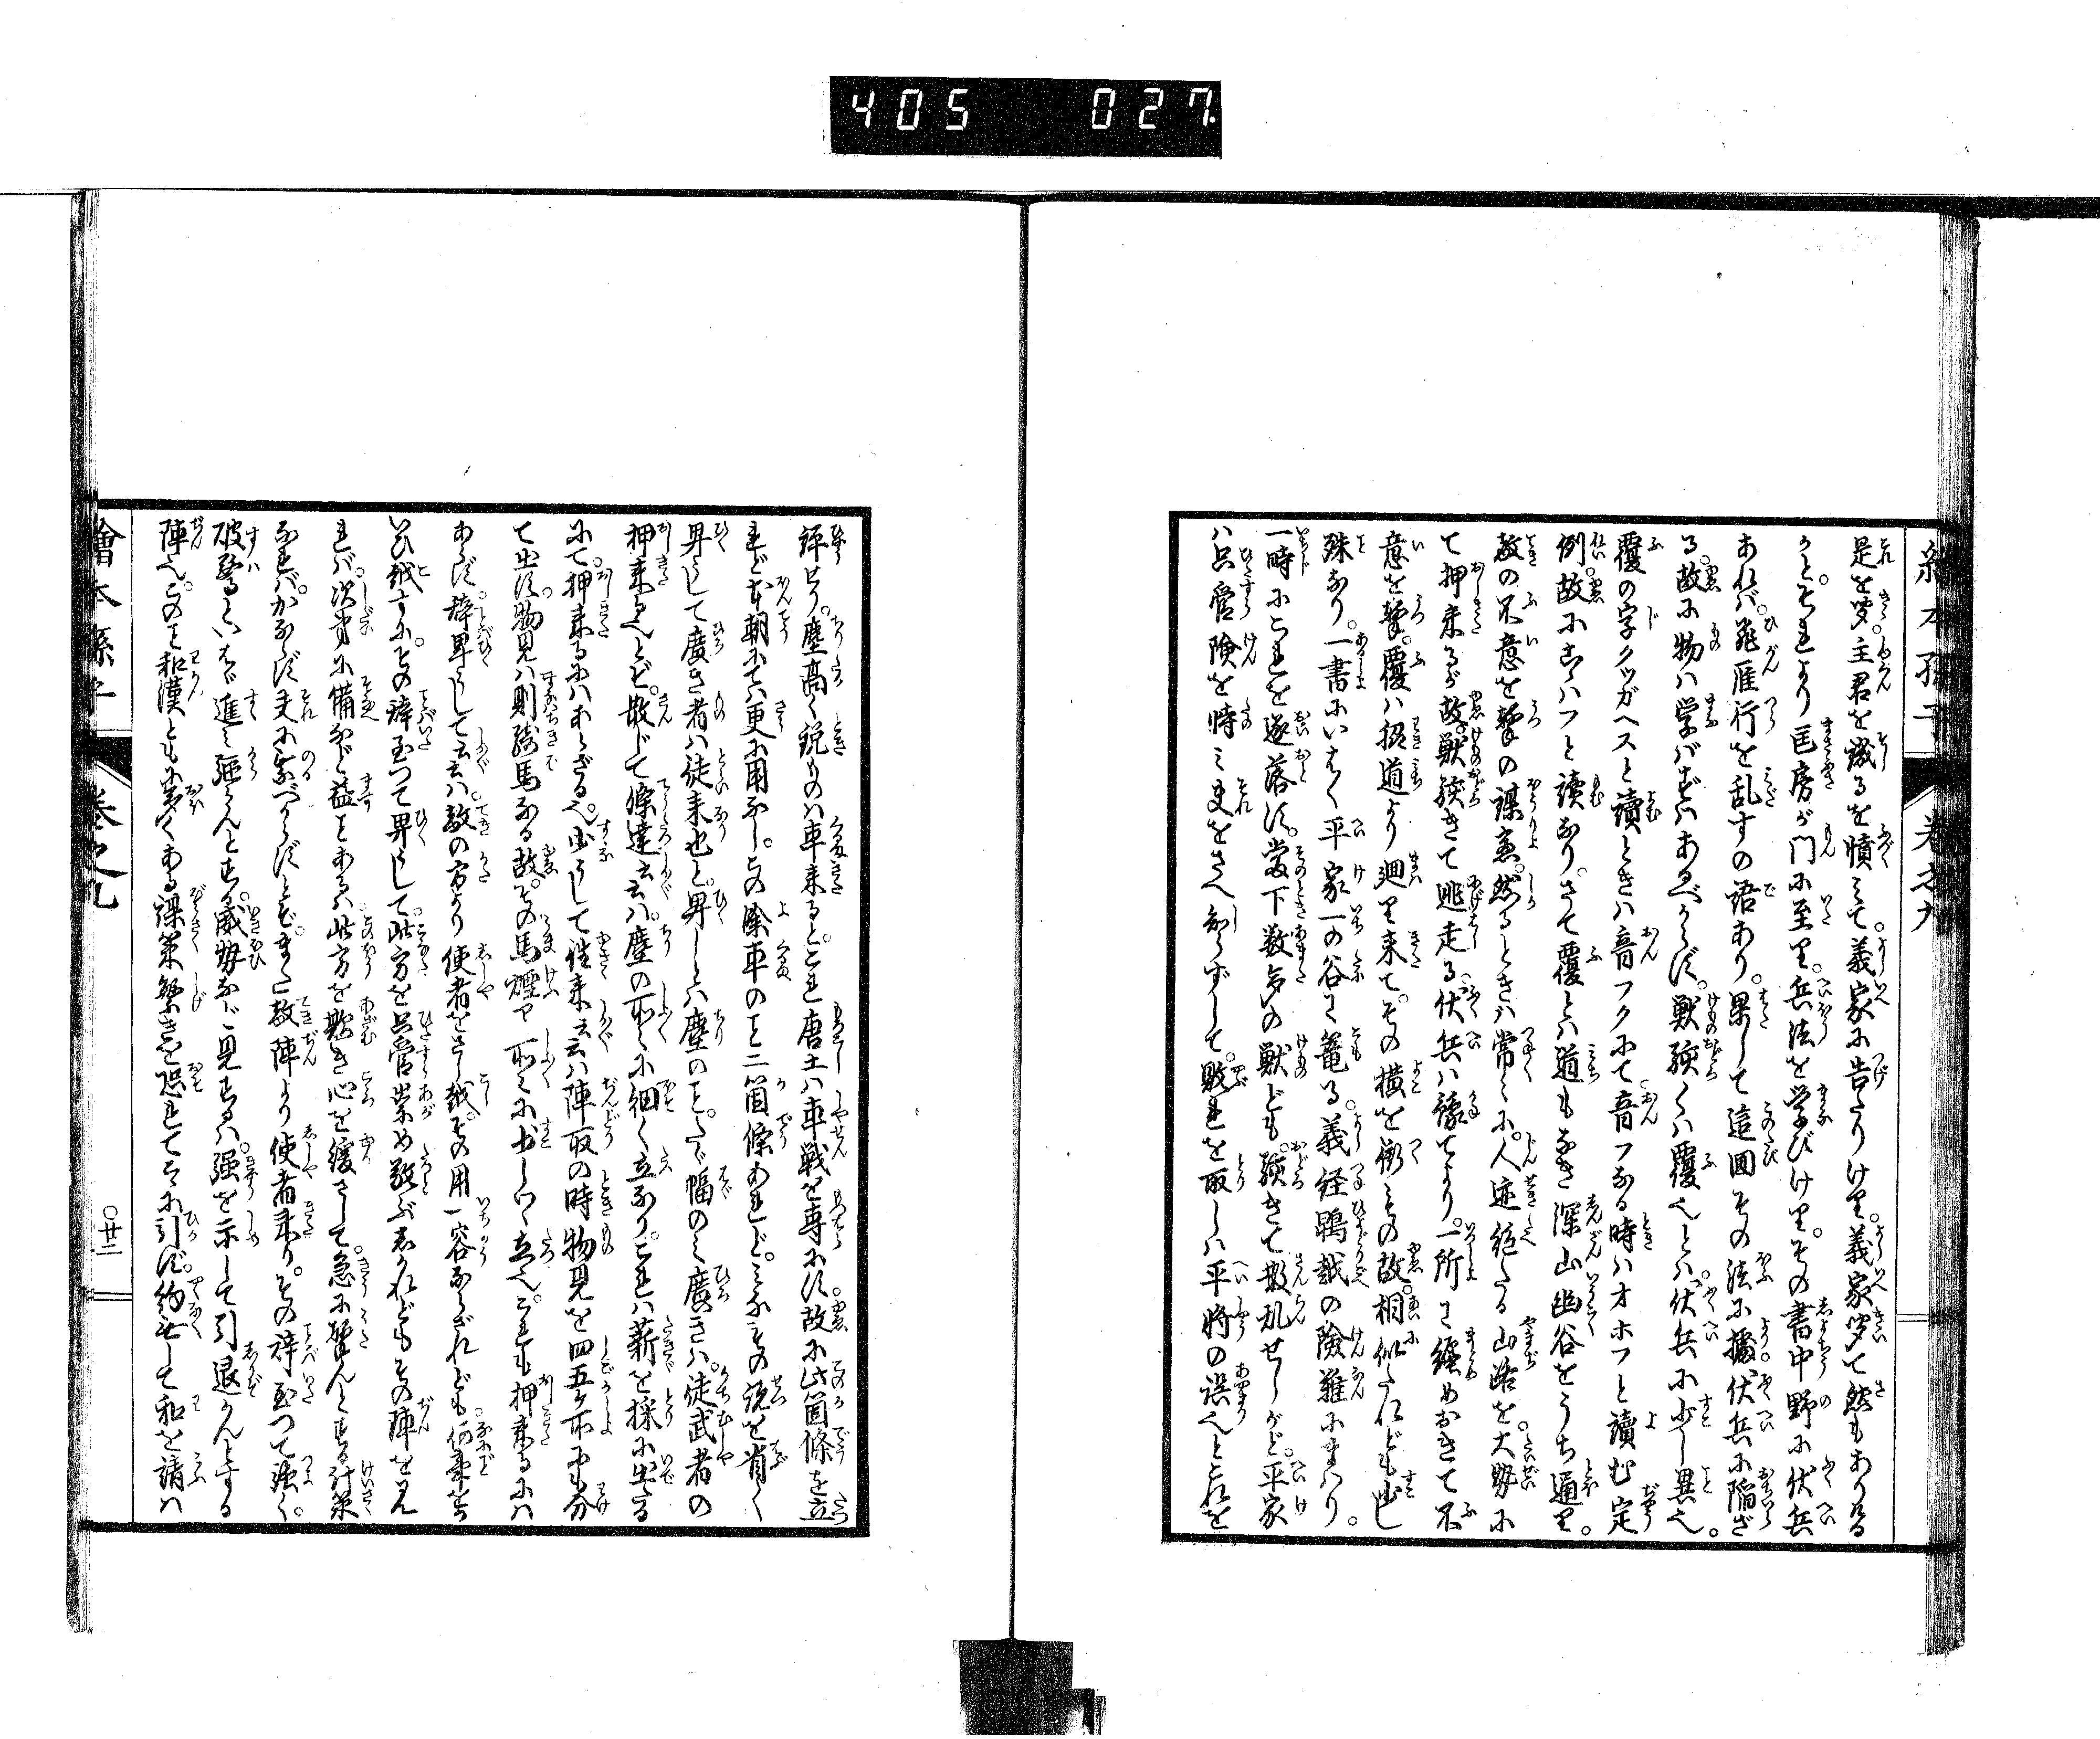 405 027
繪本孫子 巻之九
是を聞。主君を譏るを憤ミて。義家に告たりけり。義家聞て然もありける
かと。それより匡房が門に至り。兵法を学びけり。その書中野に伏兵
あれバ。飛雁行を乱すの語あり。果して這回その法に據。伏兵に陥ざ
る。故に物ハ学バずハあるべからず。獣駭くハ覆也とハ。伏兵に少し異也。
覆の字クツガヘスと讀ときハ音フクにて。音フなる時ハオホフと讀む定
例。故にこゝハフと讀なり。さて覆とハ道もなき深山幽谷をうち通り。
敵の不意を撃の謀也。然るときハ常々に。人迹絶たる山路を。大勢に
て押来るが故。獣駭きて迯走る。伏兵ハ豫てより。一所に纏めおきて不
意を撃。覆ハ招道より廻り来て。その横を衝ミの故。相似たれども少し
殊なり。一書にいはく平家一の谷に篭る。義経鵯越の險難にまハり。
一時にこれを逐落す。當下数多の獣ども。駭きて散乱せしかど。平家
ハ只管険を恃ミ夫をさへ知らずして。敗れを取しハ平将の誤也とこれを
評せり。塵高く鋭ものハ車来ると。これ唐土ハ車戦を専にす。故に此箇條を立
れど本朝にてハ更に用なし。この餘車のこと二箇條あれど。ミなその説を省く
卑くして廣き者ハ徒来也と。卑しとハ塵のこと。たゞ幅のミ廣きハ。徒武者の
押来る也とぞ。散じて條達云云ハ。塵の所々に細く立なり。これハ薪を採に出たる
にて。押来るにハあらざる也。少くして往来云云ハ陣取の時物見を四五ヶ所にも分
て出す。物見ハ則騎馬なる故。その馬煙り所々に少しづゝ立也。これも押来るにハ
あらず。辞卑くして云云ハ。敵の方より使者をさし越。その用一容ならざれども。何事を
いひ越すに。その辞至つて卑くして。此方を只管崇め敬ぶ。しかれどもその陣を見
れバ。次第に備など益とあるハ此方を欺き心を緩さして。急に撃んとする計策
なれバ。かならず夫に乗べからずとぞ。また敵陣より使者来り。その辞至つて強く。
破驁といはゞ進ミ驅らんとする。威勢など見するハ。强を示して引退かんとする
陣也。このこと和漢ともに多くある謀策繁きを恐れてこゝに引ず。約无して和を請ハ
繪本孫子 巻之九 〇廿二